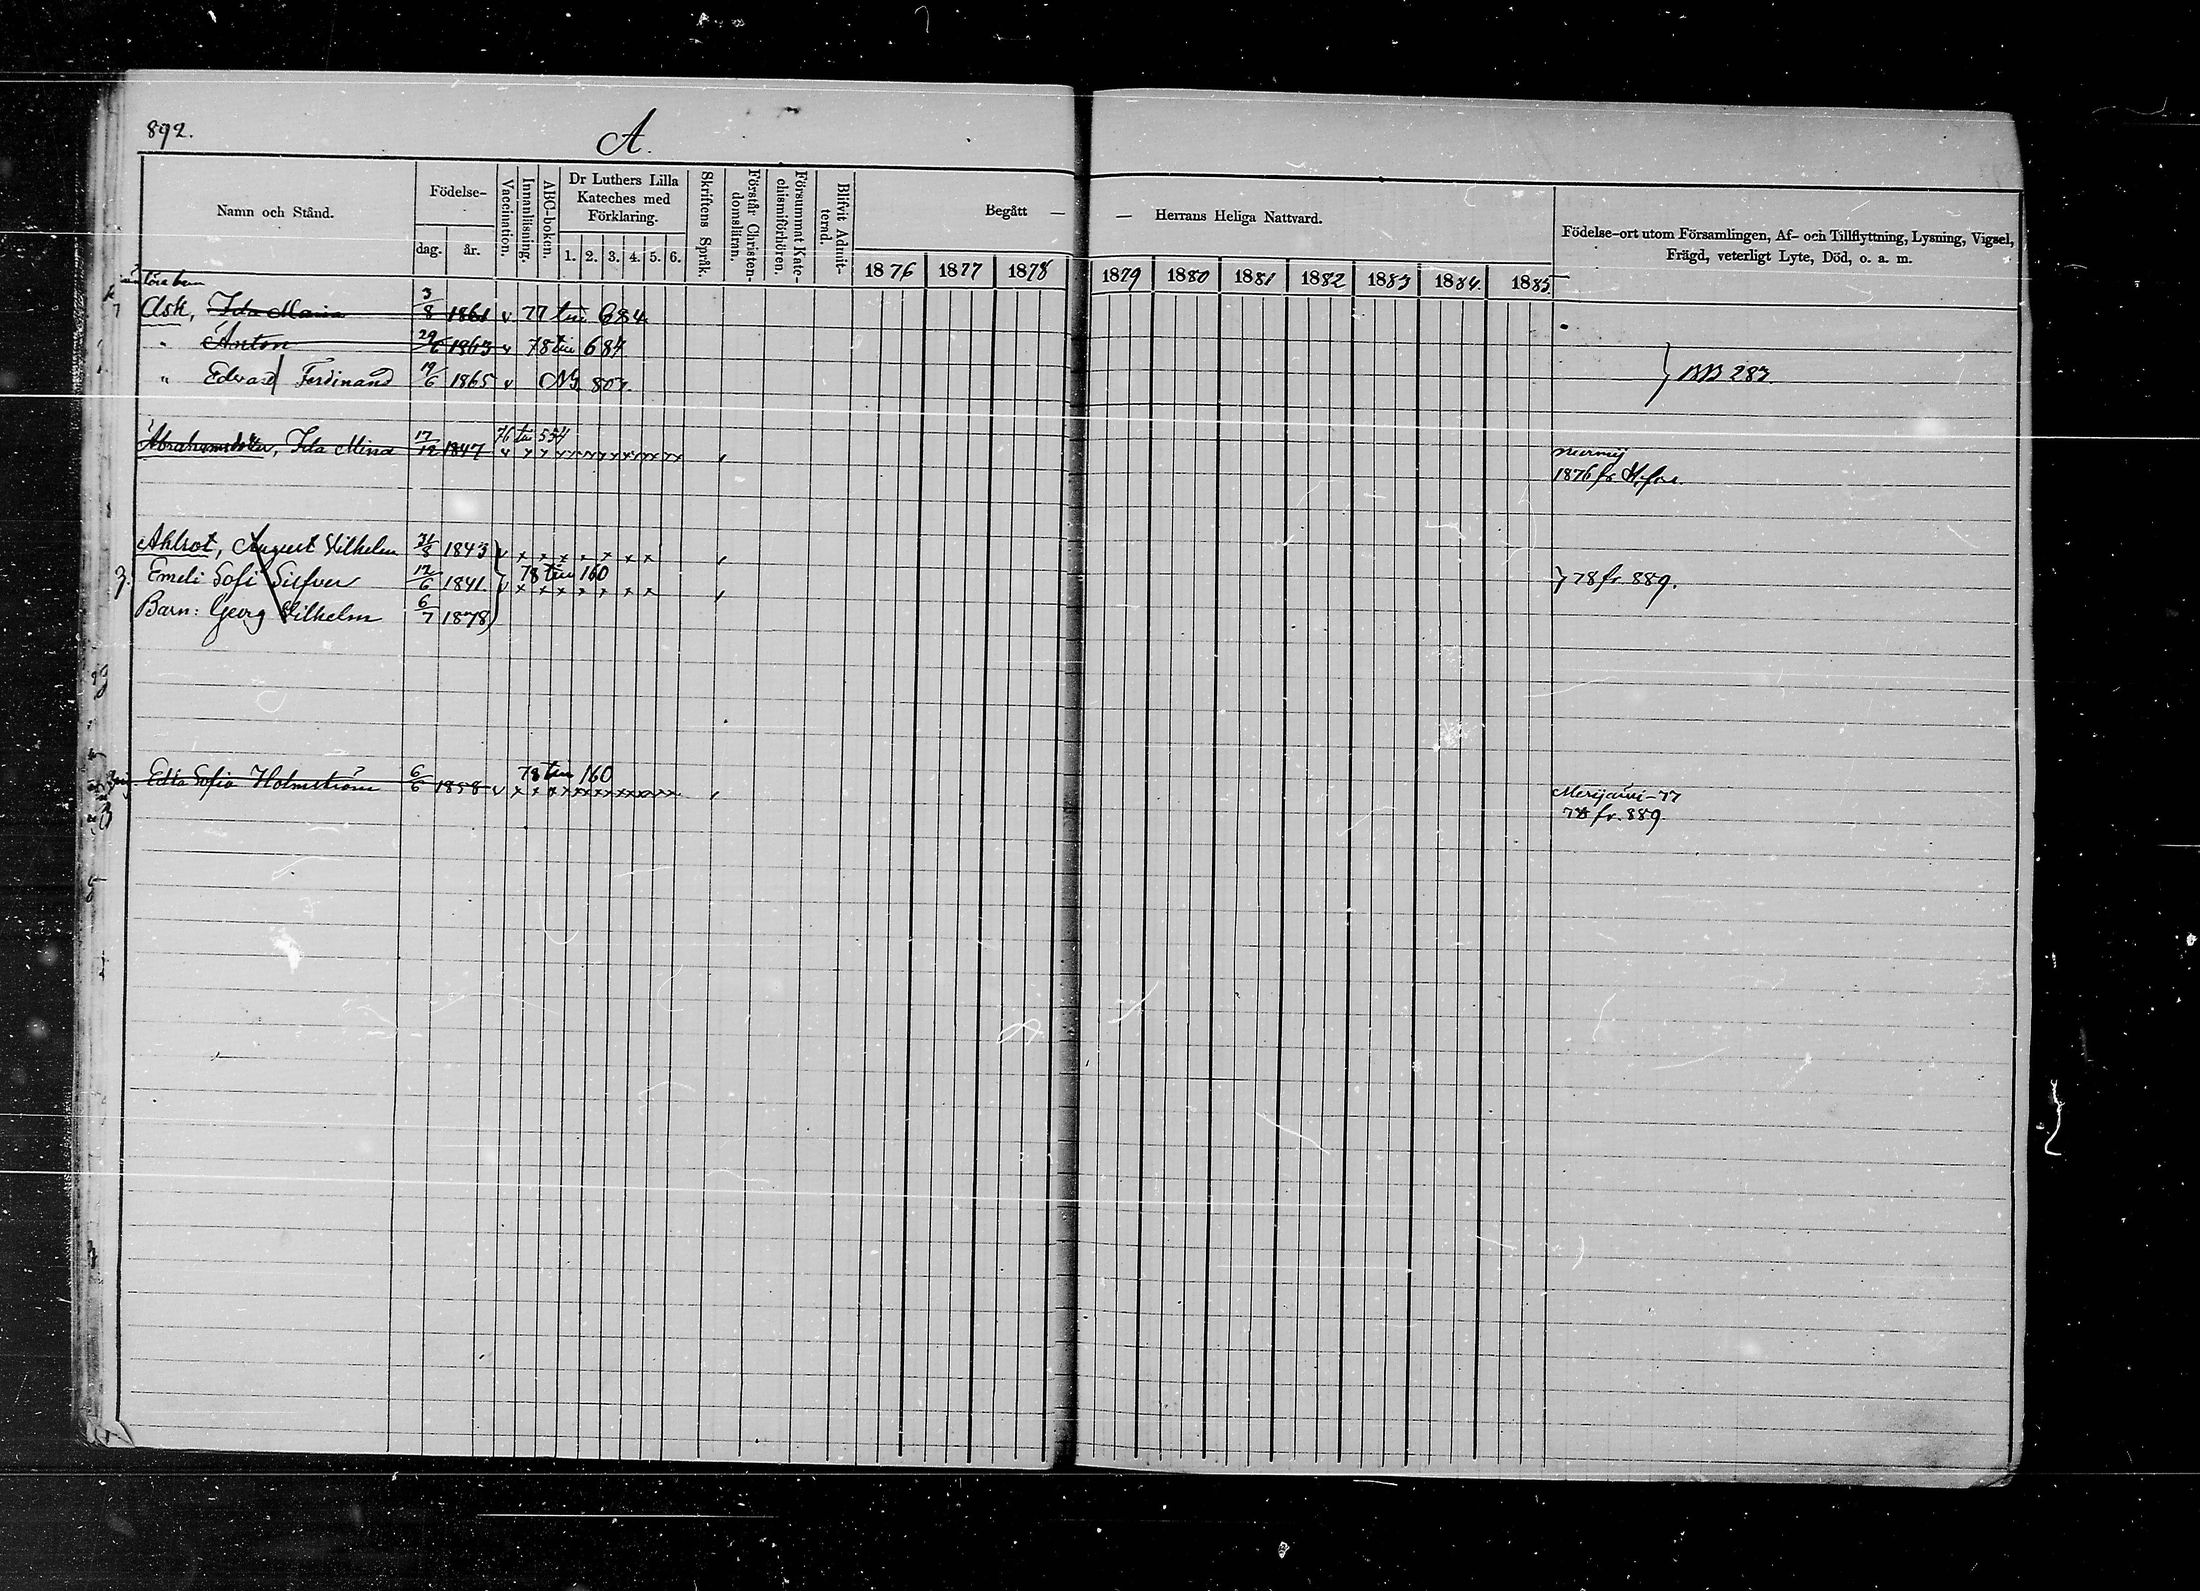 892.
A.
Namn och Stånd.
Födelse-
dag.
år.
Vaccination.
Innanläsning.
ABC-boken.
Dr Luthers Lilla
Kateches med
Förklaring.
1. 2. 3. 4. 5. 6.
Skriftens Språk.
Förstår Christen-
domsläran.
Försummat Kate-
chismiförhören.
Blifvit Admit-
terad.
Begått —
— Herrans Heliga Nattvard.
1876 1877 1878 1879 1880 1881 1882 1883 1884. 1885.
Födelse-ort utom Församlingen, Af- och Tillflyttning, Lysning, Vigsel,
Frägd, veterligt Lyte, Död, o. a. m.
Ask, Ida Maria 3/8 1861 v 77 till 684.
" Anton 29/6 1863 v 78 till 684
" Edvard Ferdinand 19/6 1865 v 807.
BB 283.
76 till 554
Abrahamsdotter, Ida Mina 17/12 1847
1876 fr. H:fors.
Ahlrot, August Vilhelm 31/8 1843 v x x x x x x x
3. Emeli Sofi Silfver 12/6 1841. v 78 till 160
} 78 fr. 889.
Barn: Georg Vilhelm 6/7 1878
78 till 160
Edla Sofia Holmström 6/6 1858 v
Merijärvi-77
78 fr. 889.